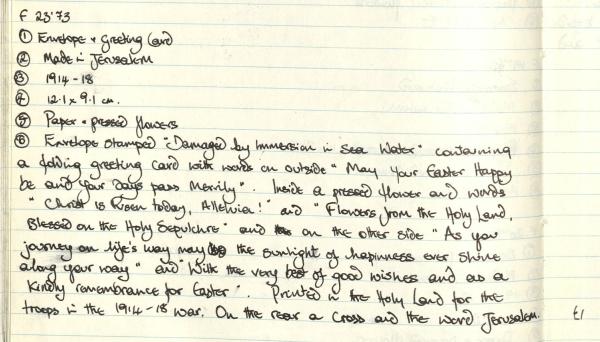 F 23'73
① Envelope + Greeting Card
② Made in Jerusalem
③ 1914-18
④ 12.1 x 9.1 cm.
⑤ Paper + pressed flowers
⑥ Envelope stamped "Damaged by Immersion in Sea Water" containing
a folding greeting card with words on outside "May Your Easter Happy
be and your Days pass Merrily". Inside a pressed flower and words
"Christ is Risen today, Alleluia!" and "Flowers from the Holy Land,
Blessed on the Holy Sepulchre" and on the other side "As you
journey on life's way may the sunlight of happinness ever shine
along your way" and "With the very best of good wishes and as a
Kindly remembrance for Easter". Printed in the Holy Land for the
troops in the 1914-18 war. On the rear a Cross and the word Jerusalem. £1